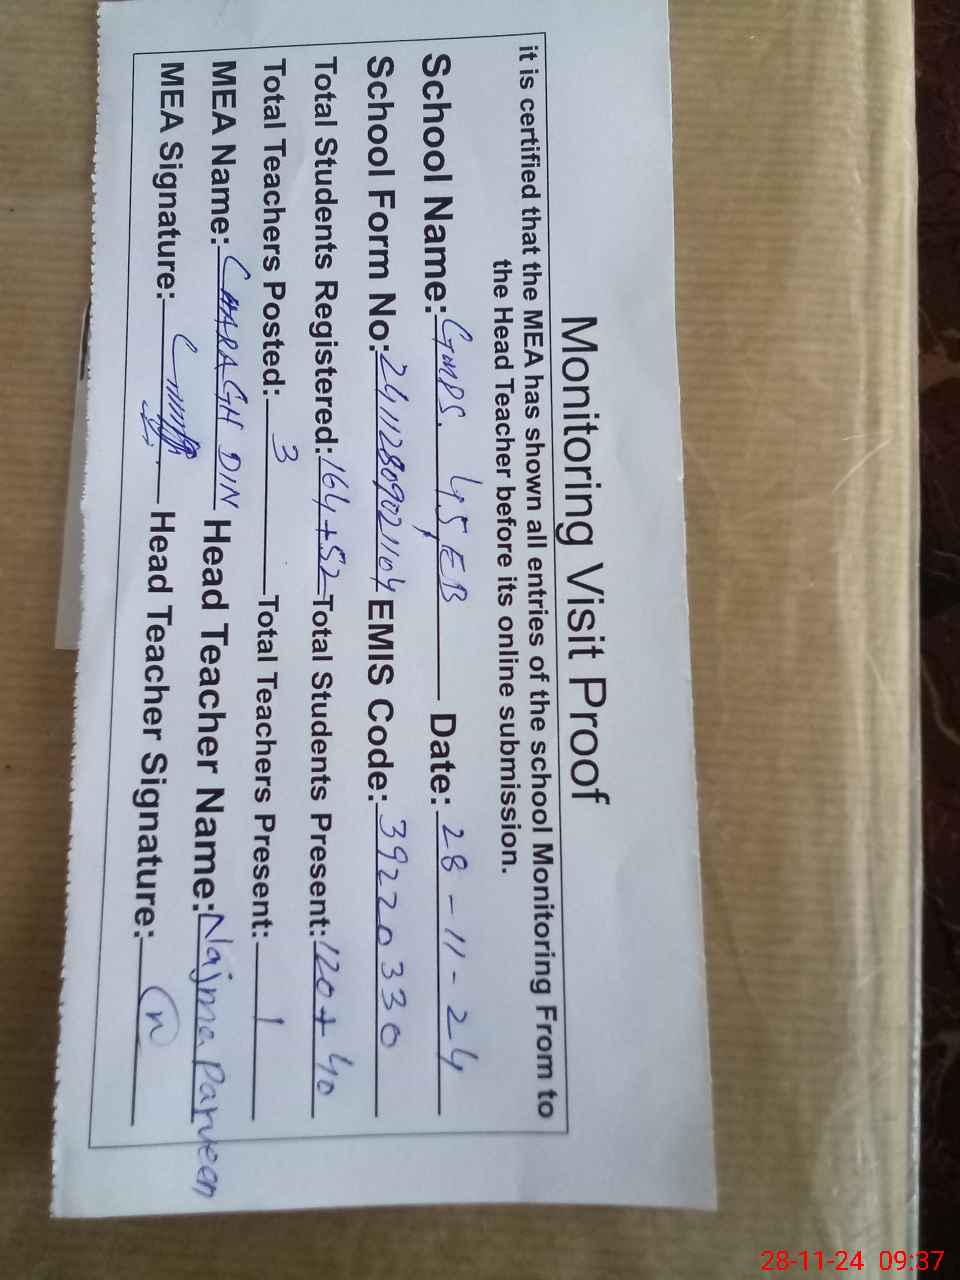 Monitoring Visit Proof
it is certified that the MEA has shown all entries of the school Monitoring From to
the Head Teacher before its online submission.
School Name: GMPS. 45 EB Date: 28-11-24
School Form No: 241128090021104 EMIS Code: 39220330
Total Students Registered: 164+52 Total Students Present: 120+40
Total Teachers Posted: 3 Total Teachers Present: 1
MEA Name: CHARAGH DIN Head Teacher Name: Najma Parveen
MEA Signature: Head Teacher Signature: n
28-11-24 09:37